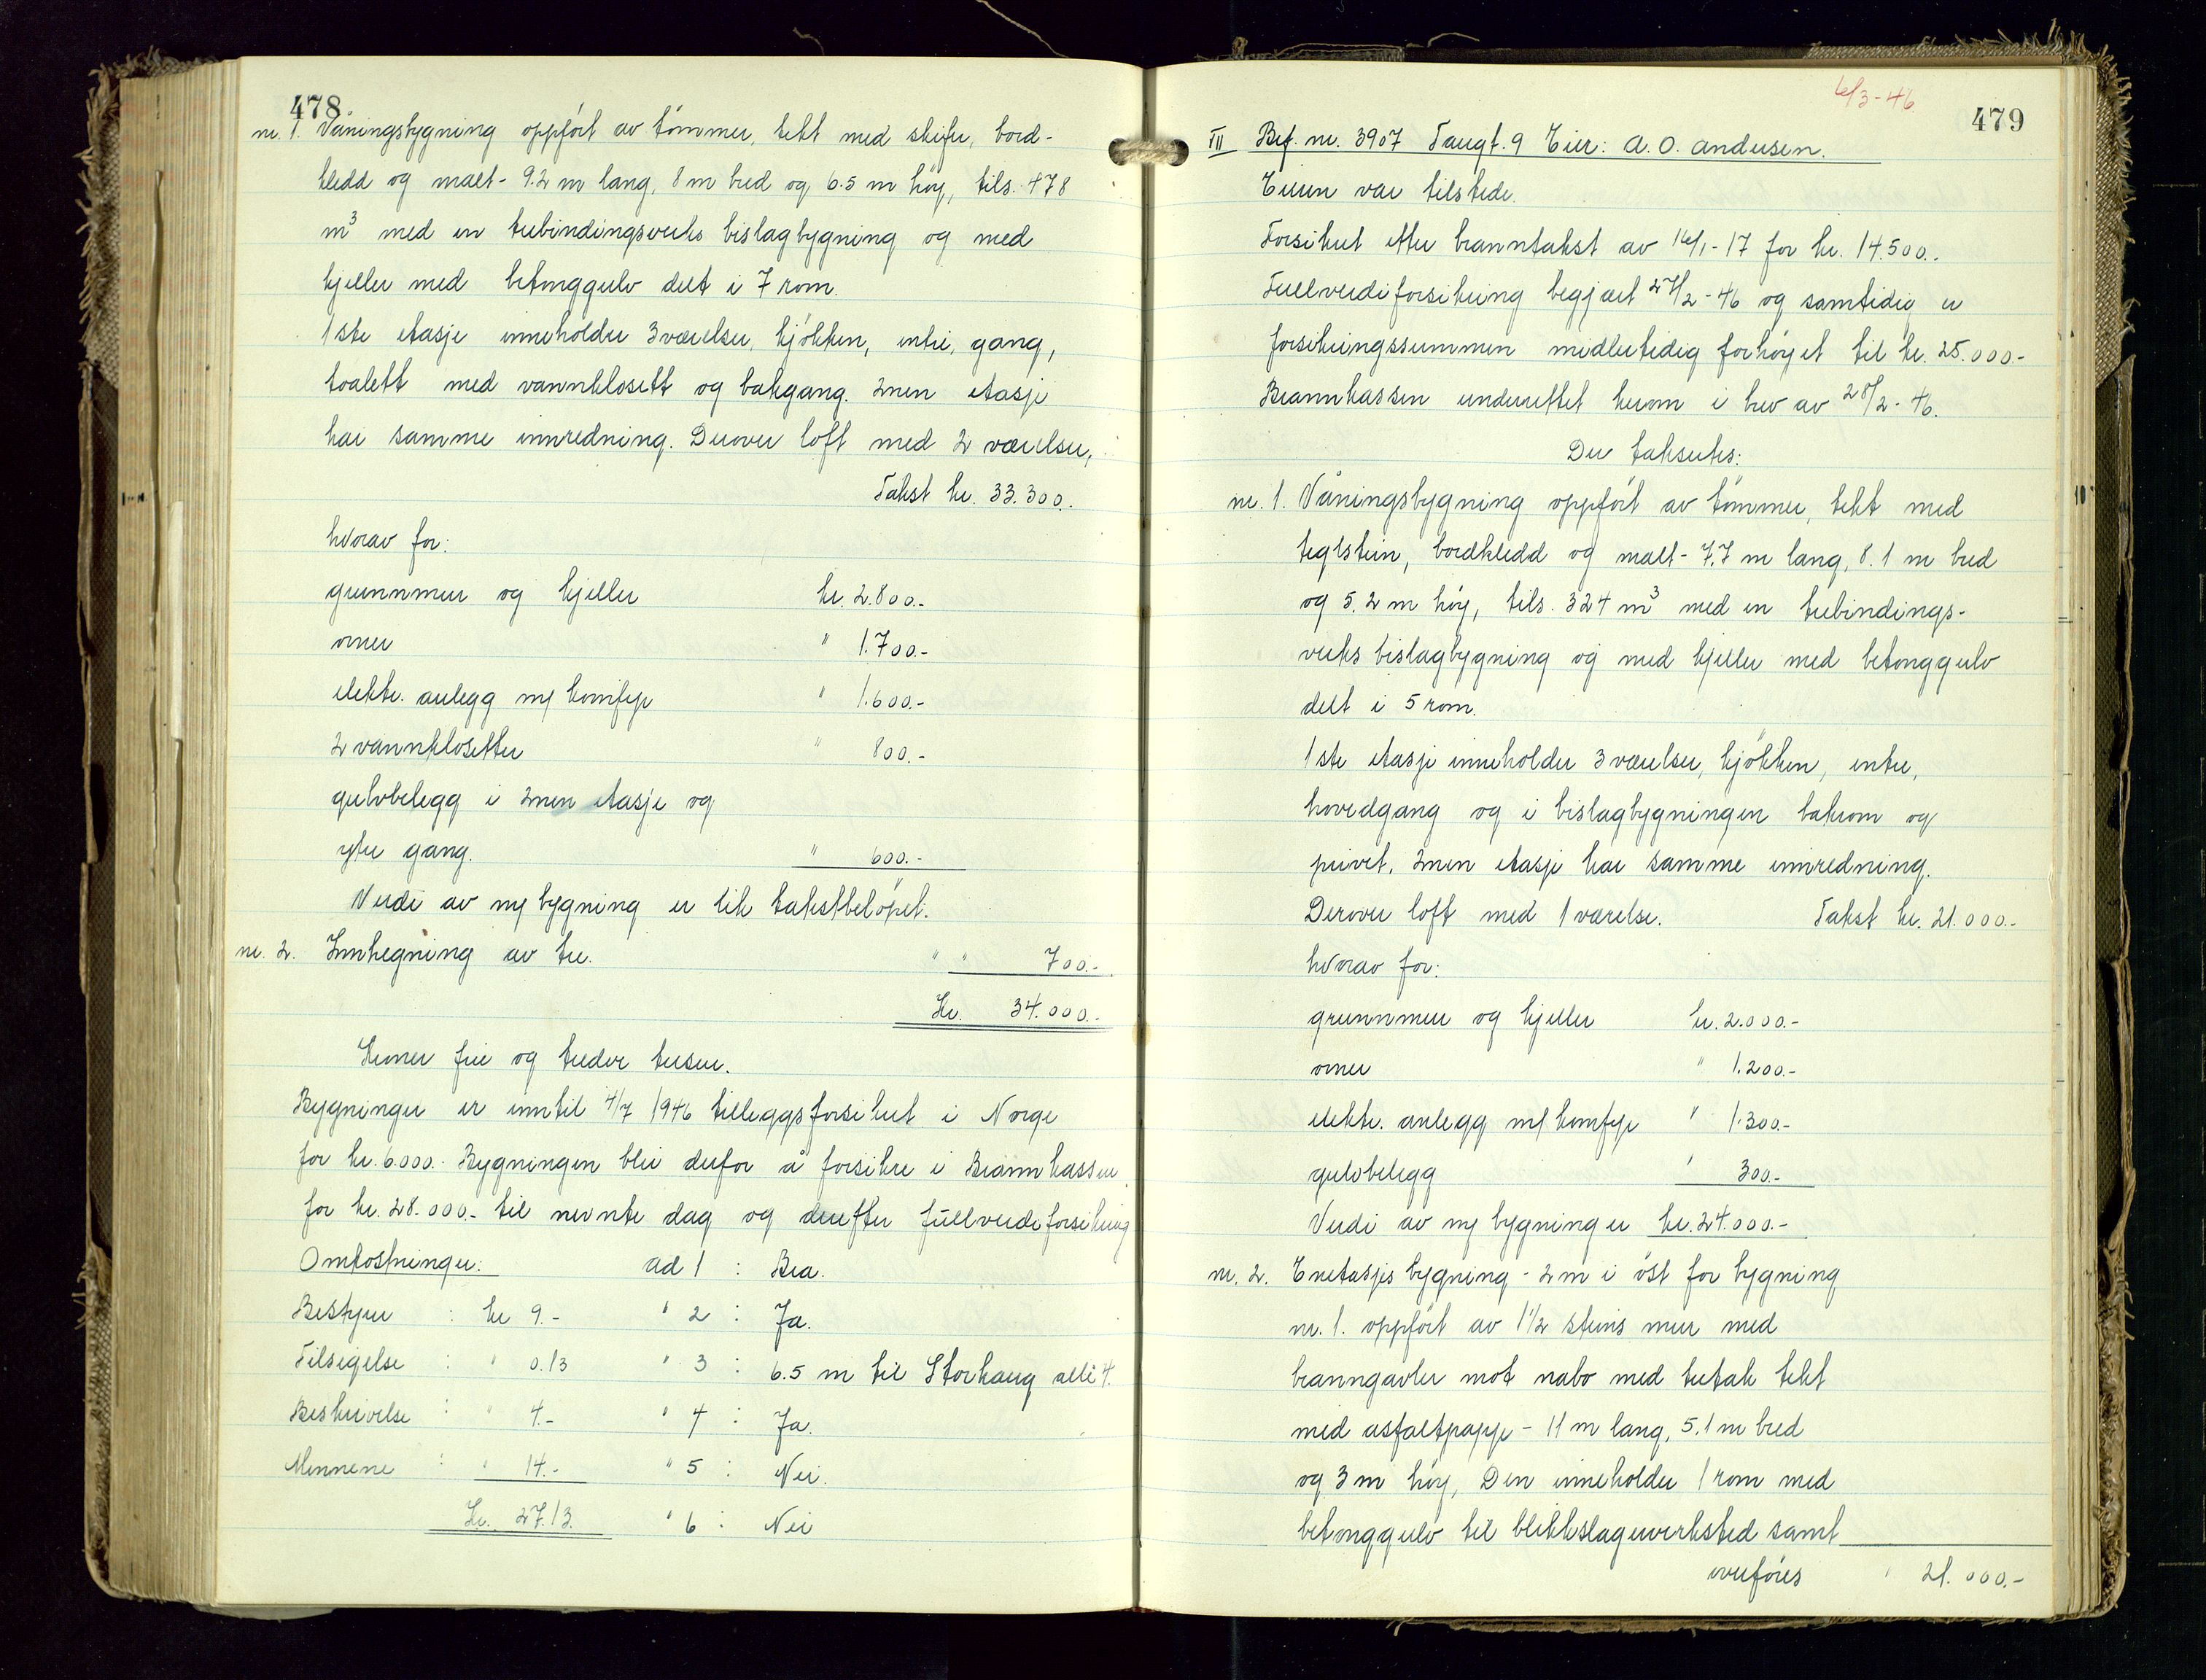 478
nr. 1. Våningsbygning oppført av tømmer, tekt med skifer, bord-
kledd og malt - 9.2 m lang, 8 m bred og 6.5 m høy, tils. 478
m³ med en trebindingsverks bislagbygning og med
kjeller med betonggulv delt i 7 rom.
1ste etasje inneholder 3 værelser, kjøkken, entre, gang,
toalett med vannklosett og bakgang. 2nen etasje
har samme innredning. Derover loft med 2 værelser,
Takst kr. 33.300.-
hvorav for:
grunnmur og kjeller kr. 2.800.-
ovner " 1.700.-
elektr. anlegg m/ komfyr " 1.600.-
2 vannklosetter " 800.-
gulvbelegg i 2nen etasje og
ytre gang. " 600.-
Verdi av ny bygning er lik takstbeløpet.
nr. 2. Innhegning av tre. " " 700.-
Kr. 34.000.-
Kroner fire og tredve tusen.
Bygninger er inntil 4/7 1946 tilleggsforsikret i Norge
for kr. 6.000.- Bygningen blir derfor å forsikre i Brannkassen
for kr. 28.000.- til nevnte dag og derefter fullverdiforsikring
Omkostninger: ad 1 : Bra.
Bestyrer : kr 9.- " 2 : Ja.
Tilsigelse : " 0.13 " 3 : 6.5 m til Storhaug allè 4.
Beskrivelse : " 4.- " 4 : Ja.
Mennene : " 14.- " 5 : Nei.
Kr. 27.13. " 6 : Nei
6/3-46
479
III Bef. nr. 3907 Taugt. 9 Eier: A. O. Andersen.
Eieren var tilstede.
Forsikret etter branntakst av 16/1-17 for kr. 14.500.-
Fullverdiforsikring begjært 27/2-46 og samtidig er
forsikringssummen midlertidig forhøyet til kr. 25.000.-
Brannkassen underrettet herom i brev av 28/2-46.
Der takseres:
nr. 1. Våningsbygning oppført av tømmer, tekt med
teglstein, bordkledd og malt - 7.7 m lang, 8.1 m bred
og 5.2 m høy, tils. 324 m³ med en trebindings-
verks bislagbygning og med kjeller med betonggulv
delt i 5 rom.
1ste etasje inneholder 3 værelser, kjøkken, entre,
hovedgang og i bislagbygningen bakrom og
privet. 2nen etasje har samme innredning.
Derover loft med 1 værelse. Takst kr. 21.000.-
hvorav for:
grunnmur og kjeller kr. 2.000.-
ovner " 1.200.-
elektr. anlegg m/ komfyr " 1.300.-
gulvbelegg " 300.-
Verdi av ny bygning er kr. 24.000.-
nr. 2. Enetasjes bygning - 2 m i øst for bygning
nr. 1. oppført av 1 1/2 steins mur med
branngavler mot nabo med tretak tekt
med asfaltpapp - 11 m lang, 5.1 m bred
og 3 m høy, Den inneholder 1 rom med
betonggulv til blikkslagerverksted samt
overføres " 21.000.-